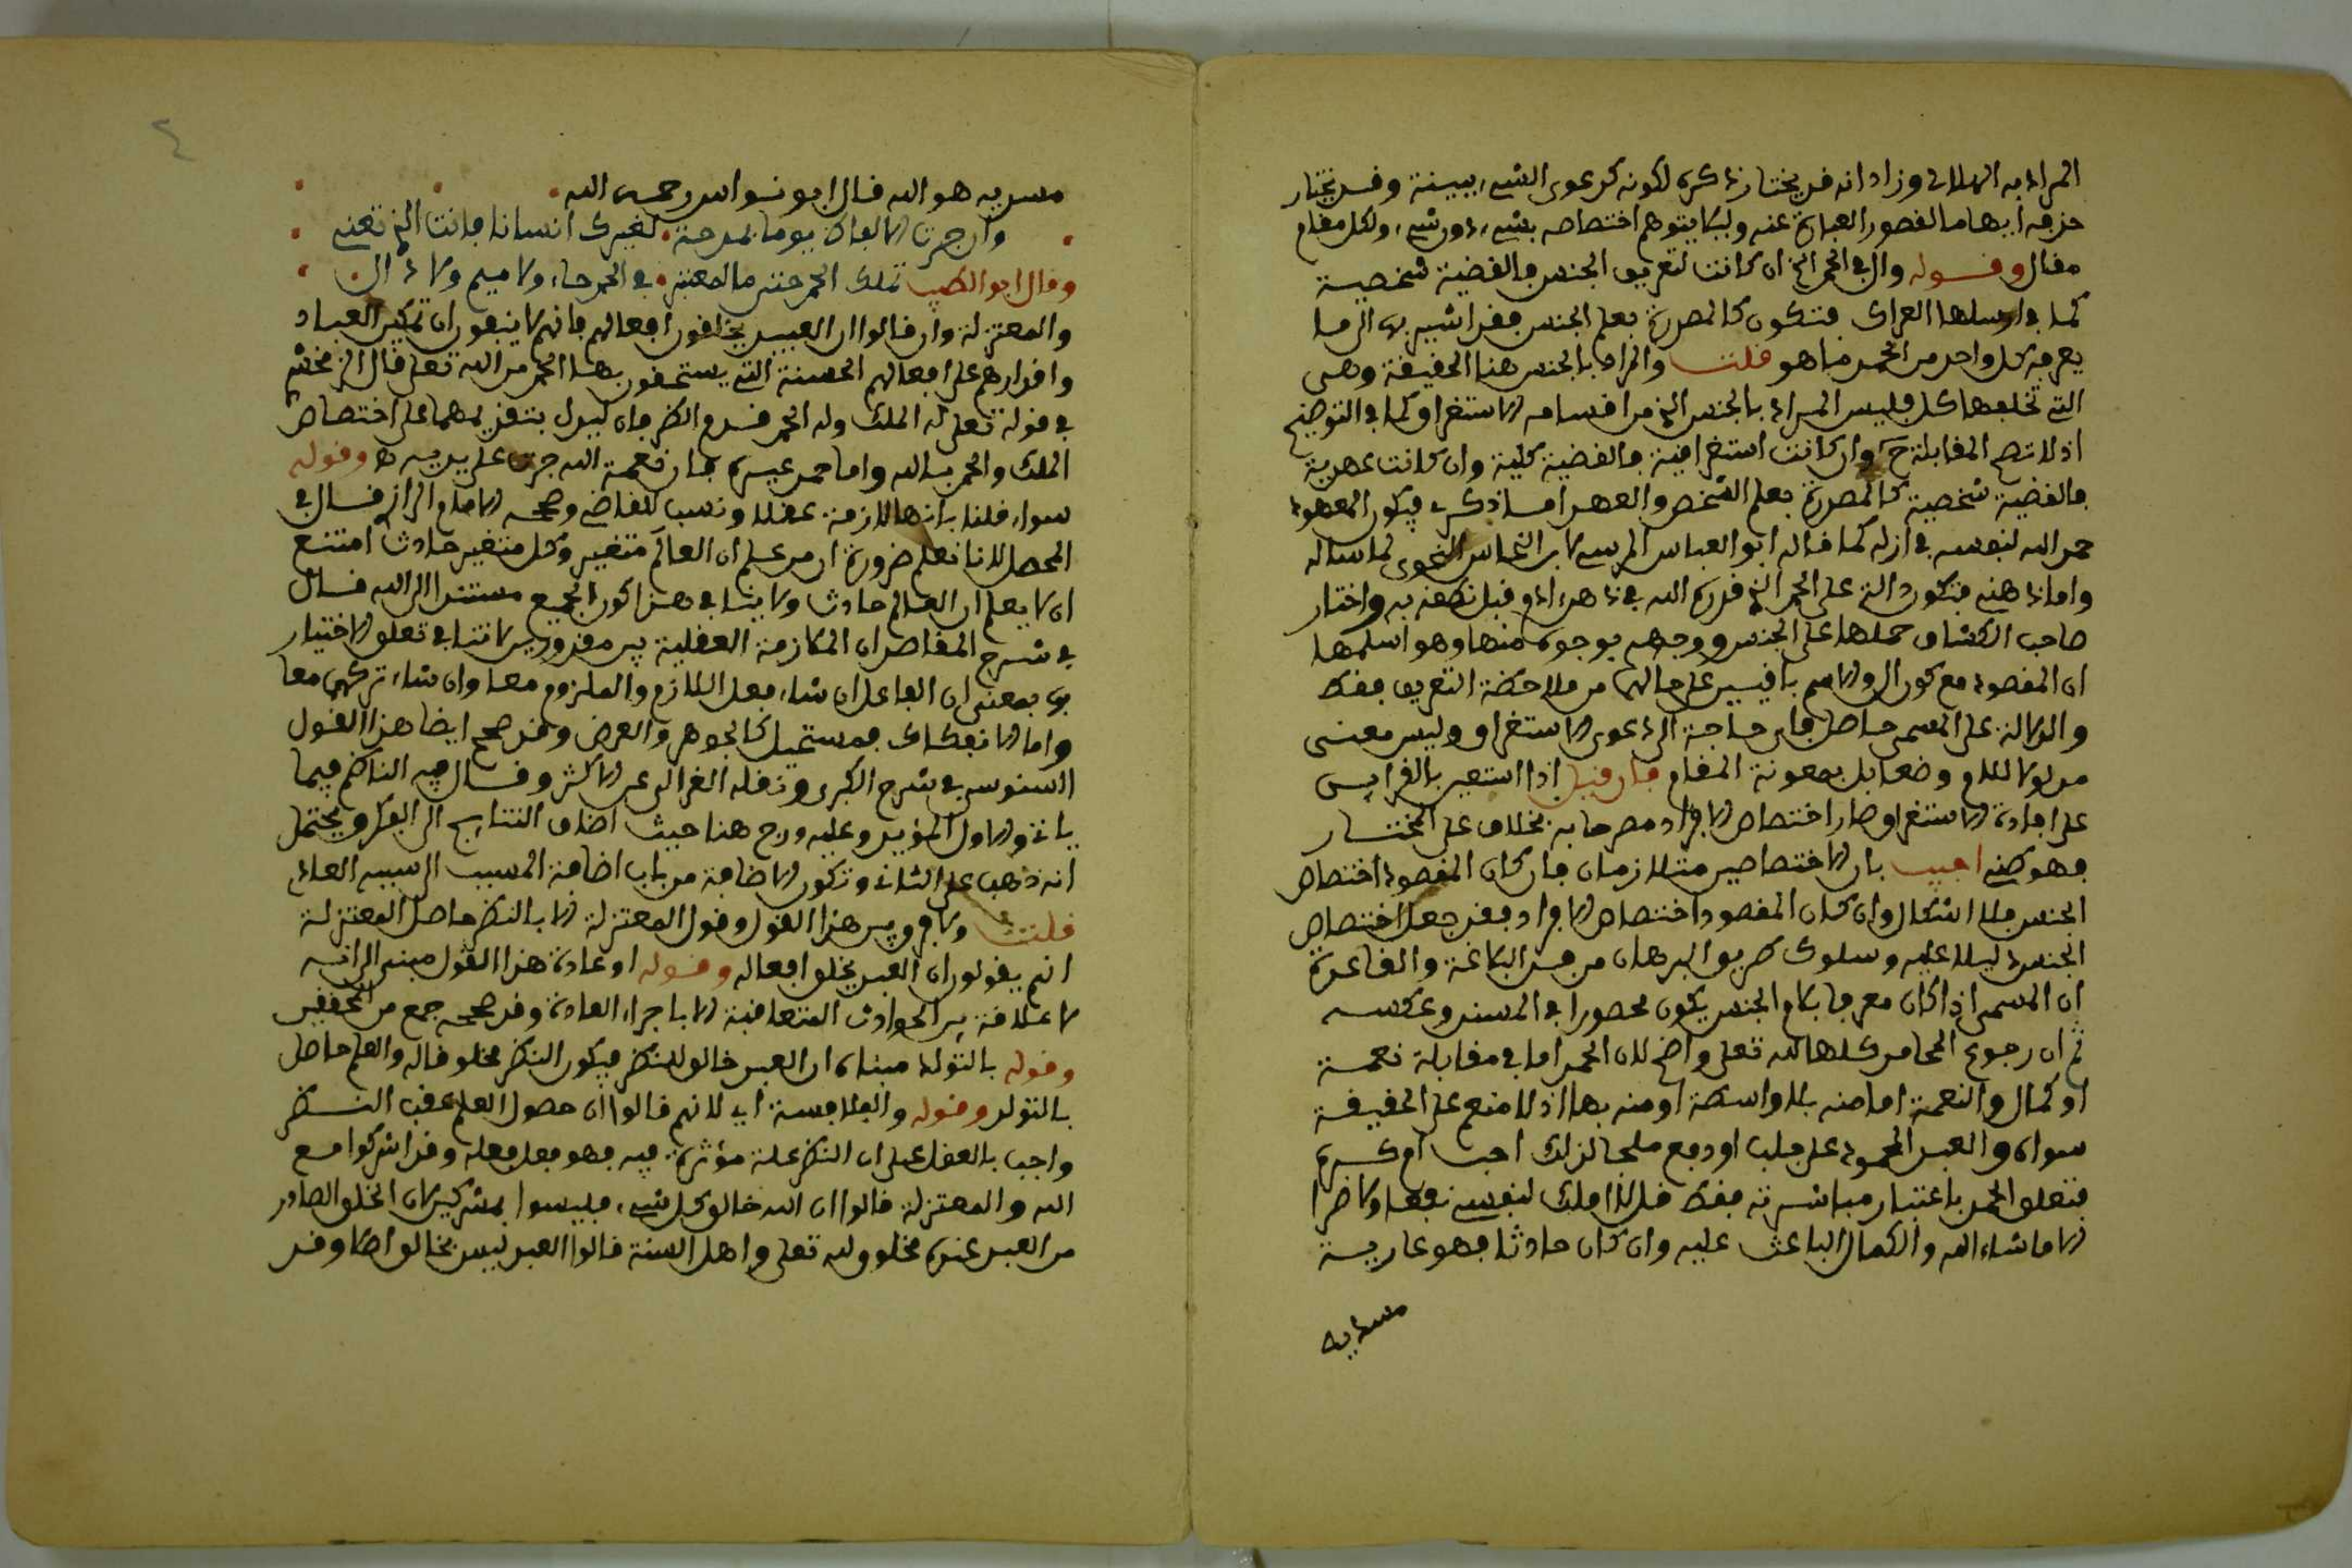 المراد به الهلالي وزاد انه قد يختار ذكره لكونه كدعوى الشيء ببينة وقد يختار
حذفه ايهاما لقصور العبارة عنه وليلا يتوهم اختصاصه بشيء دون شيء ولكل مقام
مقال وقوله وال في الحمد الخ ان كانت لتعريف الجنس فالقضية شخصية
كما في ارسلها العراك فتكون كالمصدرة بعلم الجنس فقد اشير بها الى ما
يعرفه كل واحد من الحمد ما هو قلت والمراد بالجنس هنا الحقيقة وهي
التي تخلفها كل فليس المراد بالجنس الذي من اقسامه الاستغراق كما في التوضيح
اذ لا تصح المقابلة ح وان كانت استغراقية فالقضية كلية وان كانت عهدية
فالقضية شخصية كالمصدرة بعلم الشخص والعهد اما ذكري فيكون المعهود
حمد الله لنفسه في ازله كما قاله ابو العباس المرسي لابن النحاس النحوي لما ساله
واما ذهني فتكون دالة على الحمد الذي قدره الله في ذهن ادم قبل نطقه به واختار
صاحب الكشاف حملها على الجنس ووجهه بوجوه منها وهو اسلمها
ان المقصود مع كون ال والاسم باقيين على حالهما من ملاحظة التعريف فقط
والدلالة على المسمى حاصل فاي حاجة الى دعوى الاستغراق وليس معنى
مدلولا للام وضعا بل بمعونة المقام فان قيل اذا استعين بالقرايــن
على افادة الاستغراق صار اختصاص الافراد مصرحا به بخلاف على المختــار
فهو ضمني اجيب بان الاختصاصين متلازمان فان كان المقصود اختصاص
الجنس فلا اشكال وان كان المقصود اختصاص الافراد فقد جعل اختصاص
الجنس دليلا عليه وسلوك طريق البرهان من فن البلاغة والقاعدة
ان المسمى اذا كان معرفا بلام الجنس يكون محصورا في المسند وعكسه
ثم ان رجوع المحامد كلها لله تعلى واضح لان الحمد اما في مقابلة نعمــة
او كمال والنعمة اما منه بلا واسطة او منه بها اذ لا منعم على الحقيقــة
سواه والعبد المحمود على جلب او دفع ملجا لذلك احب ام كــره
فتعلق الحمد باعتبار مباشرته فقط قل لا املك لنفسي نفعا ولا ضرا
الا ما شاء الله والكمال الباعث عليه وان كان حادثا فهو عاريــة
مسديه
مسديه هو الله قال ابو نــواس رحمــه الله
وان جرت الالفاظ يوما بمدحة لغيرك انسانا فانت الذي تعني
وقال ابو الطيب تملك الحمد حتى ما لمعتبر في الحمد حاء ولا ميم ولا دال
والمعتزلة وان قالوا ان العبيد يخلقون افعالهم فانهم لا ينفون ان تمكين العباد
واقدارهم على افعالهم الحسنة التي يستحقون بها الحمد من الله تعلى قال الزمخشري
في قوله تعلى له الملك وله الحمد قدم الظرفان ليدل بتقديمهما على اختصاص
الملك والحمد بالله واما حمد غيره فلان نعمة الله جرت على يديه ه وقوله
سواء قلنا بانها لازمة عقلا ونسب للقاضي وصححه الامام الرازي قــال في
المحصل لانا نعلم ضرورة ان من علم ان العالم متغير وكل متغير حادث امتنع
ان لا يعلم ان العالم حادث ولا ينافي هذا كون الجميع مستندا الى الله قــال
في شرح المقاصد ان الملازمة العقلية بين مقدورين لا تنافي تعلق الاختيار
بها بمعنى ان الفاعل ان شاء فعل اللازم والملزوم معا وان شاء تركهما معا
واما الانفكاك فمستحيل كالجوهر والعرض وقد صحح ايضا هذا القول
السنوسي في شرح الكبرى ونقله الغزالي عن الاكثر وقــال فيه الناظم فيما
ياتي والاول المؤيد وعليه درج هنا حيث اضاف النتايــج الى الفكر ويحتمل
انه ذهب على الثاني وتكون الاضافة من باب اضافة المسبب الى سببه العادي
قلت ولا فرق بين هذا القول وقول المعتزلة الا بالنظر حاصل المعتزلة
انهم يقولون ان العبد يخلق افعاله وقــوله او عادة هذا القول مبني الى انه
لا علاقة بين الحوادث المتعاقبة الا باجراء العادة وقد صححه جمع من المحققين
وقوله بالتولد مبناه ان العبد خالق للنظر فيكون النظر مخلوقا له والعلم حاصل
بالتولد وقوله والفلاسفة اي لانهم قالوا ان حصول العلم عقب النــظر
واجب بالعقل على ان النظر علة مؤثرة فيه فهو فعل فعله وقد اشركوا مــع
الله والمعتزلة قالوا ان الله خالق كل شيء فليسوا بمشركين لان الخلق الصادر
من العبد عنده مخلوق لله تعلى واهل السنة قالوا العبد ليس بخالق اصلا وقــد